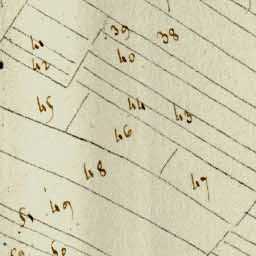 39
38
41
40
42
45
44
43
46
48
47
49
50